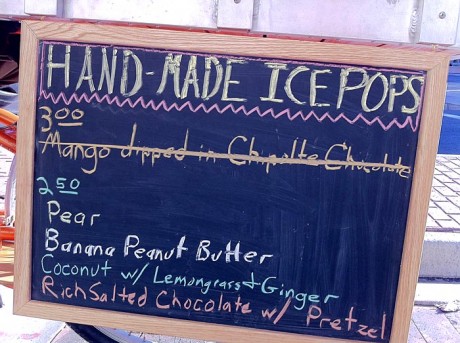 HAND-MADE ICE POPS
3.00
Mango dipped in Chipotle Chocolate
2.50
Pear
Banana Peanut Butter
Coconut w/ Lemongrass + Ginger
Rich Salted Chocolate w/ Pretzel